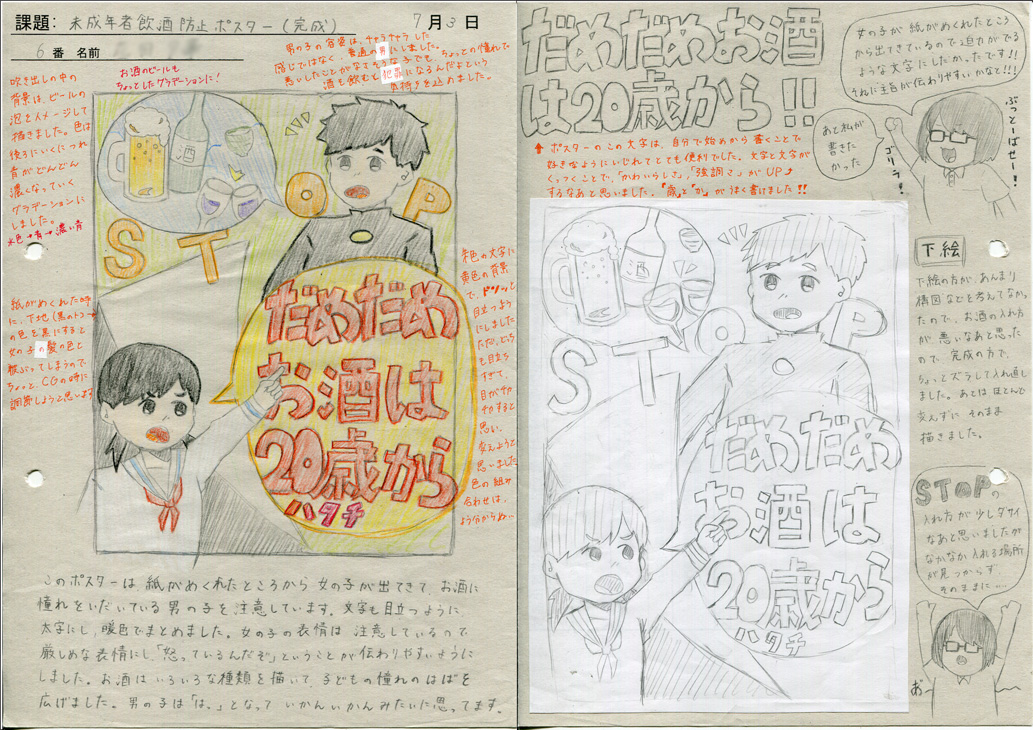 課題: 未成年者飲酒防止ポスター(完成)
7月3日
6番 名前
お酒のビールも
ちょっとしたグラデーションに!
男の子の容姿は、チャラチャラした
感じではなく、普通の男にしました。
ちょっとの憧れで
悪いしたことがなさそうな子でも、
酒を飲むと犯罪になるんだぞという
気持ちを込めました。
吹き出しの中の
背景は、ビールの
泡をイメージして
描きました。色は
後ろにいくにつれ
青がどんどん
濃くなっていく
グラデーションに
しました。
水色→青→濃い青
紙がめくれた時
に、下地(裏のトコ)
の色を黒にすると
女の子の髪の色と
被ぶってしまうので
ちょっと、CGの時に
調節しようと思います
酒
STOP
だめだめ
お酒は
20歳から
ハタチ
朱色の文字に
黄色の背景
で、ドカッと
目立つよう
にしました
ただ、どちら
も目立ち
すぎて、
目がチカ
チカすると
思い、
変えようと
思いました
色の組み
合わせは、
よう分からぬ…
このポスターは紙がめくれたところから女の子が出てきて、お酒に
憧れをいだいている男の子を注意しています。文字も目立つように
太字にし、暖色でまとめました。女の子の表情は注意しているので
厳しめな表情にし「怒っているんだぞ」ということが伝わりやすいように
しました。お酒はいろいろな種類を描いて、子どもの憧れのはばを
広げました。男の子は「は、」となっていかんいかんみたいに思ってます。
だめだめお酒
は20歳から!!
↑ポスターのこの文字は、自分で始めから書くことで
好きなようにいじれてとても便利でした。文字と文字が
くっつくことで、「かわいらしさ」、「強調さ」がUP↗
するなあと思いました。「歳」と「か」がうまく書けました!!
女の子が紙がめくれたところ
から出てきているので迫力がでる
ような文字にしたかったです!!
それに主旨が伝わりやすいかなと!!!
あと私が
書きた
かった
ゴリラ!
ぶっとーばせー!!
酒
STOP
だめだめ
お酒は
20歳から
ハタチ
下絵
下絵の方が、あんまり
構図などを考えてなか
たので、お酒の入れ方
が悪いなあと思った
ので、完成の方で、
ちょっとズラして入れ直し
ました。あとはほとんど
変えずにそのまま
描きました。
STOPの
入れ方が少しダサイ
なあと思いましたが
なかなか入れる場所
が見つからず、
そのままに…
お〜